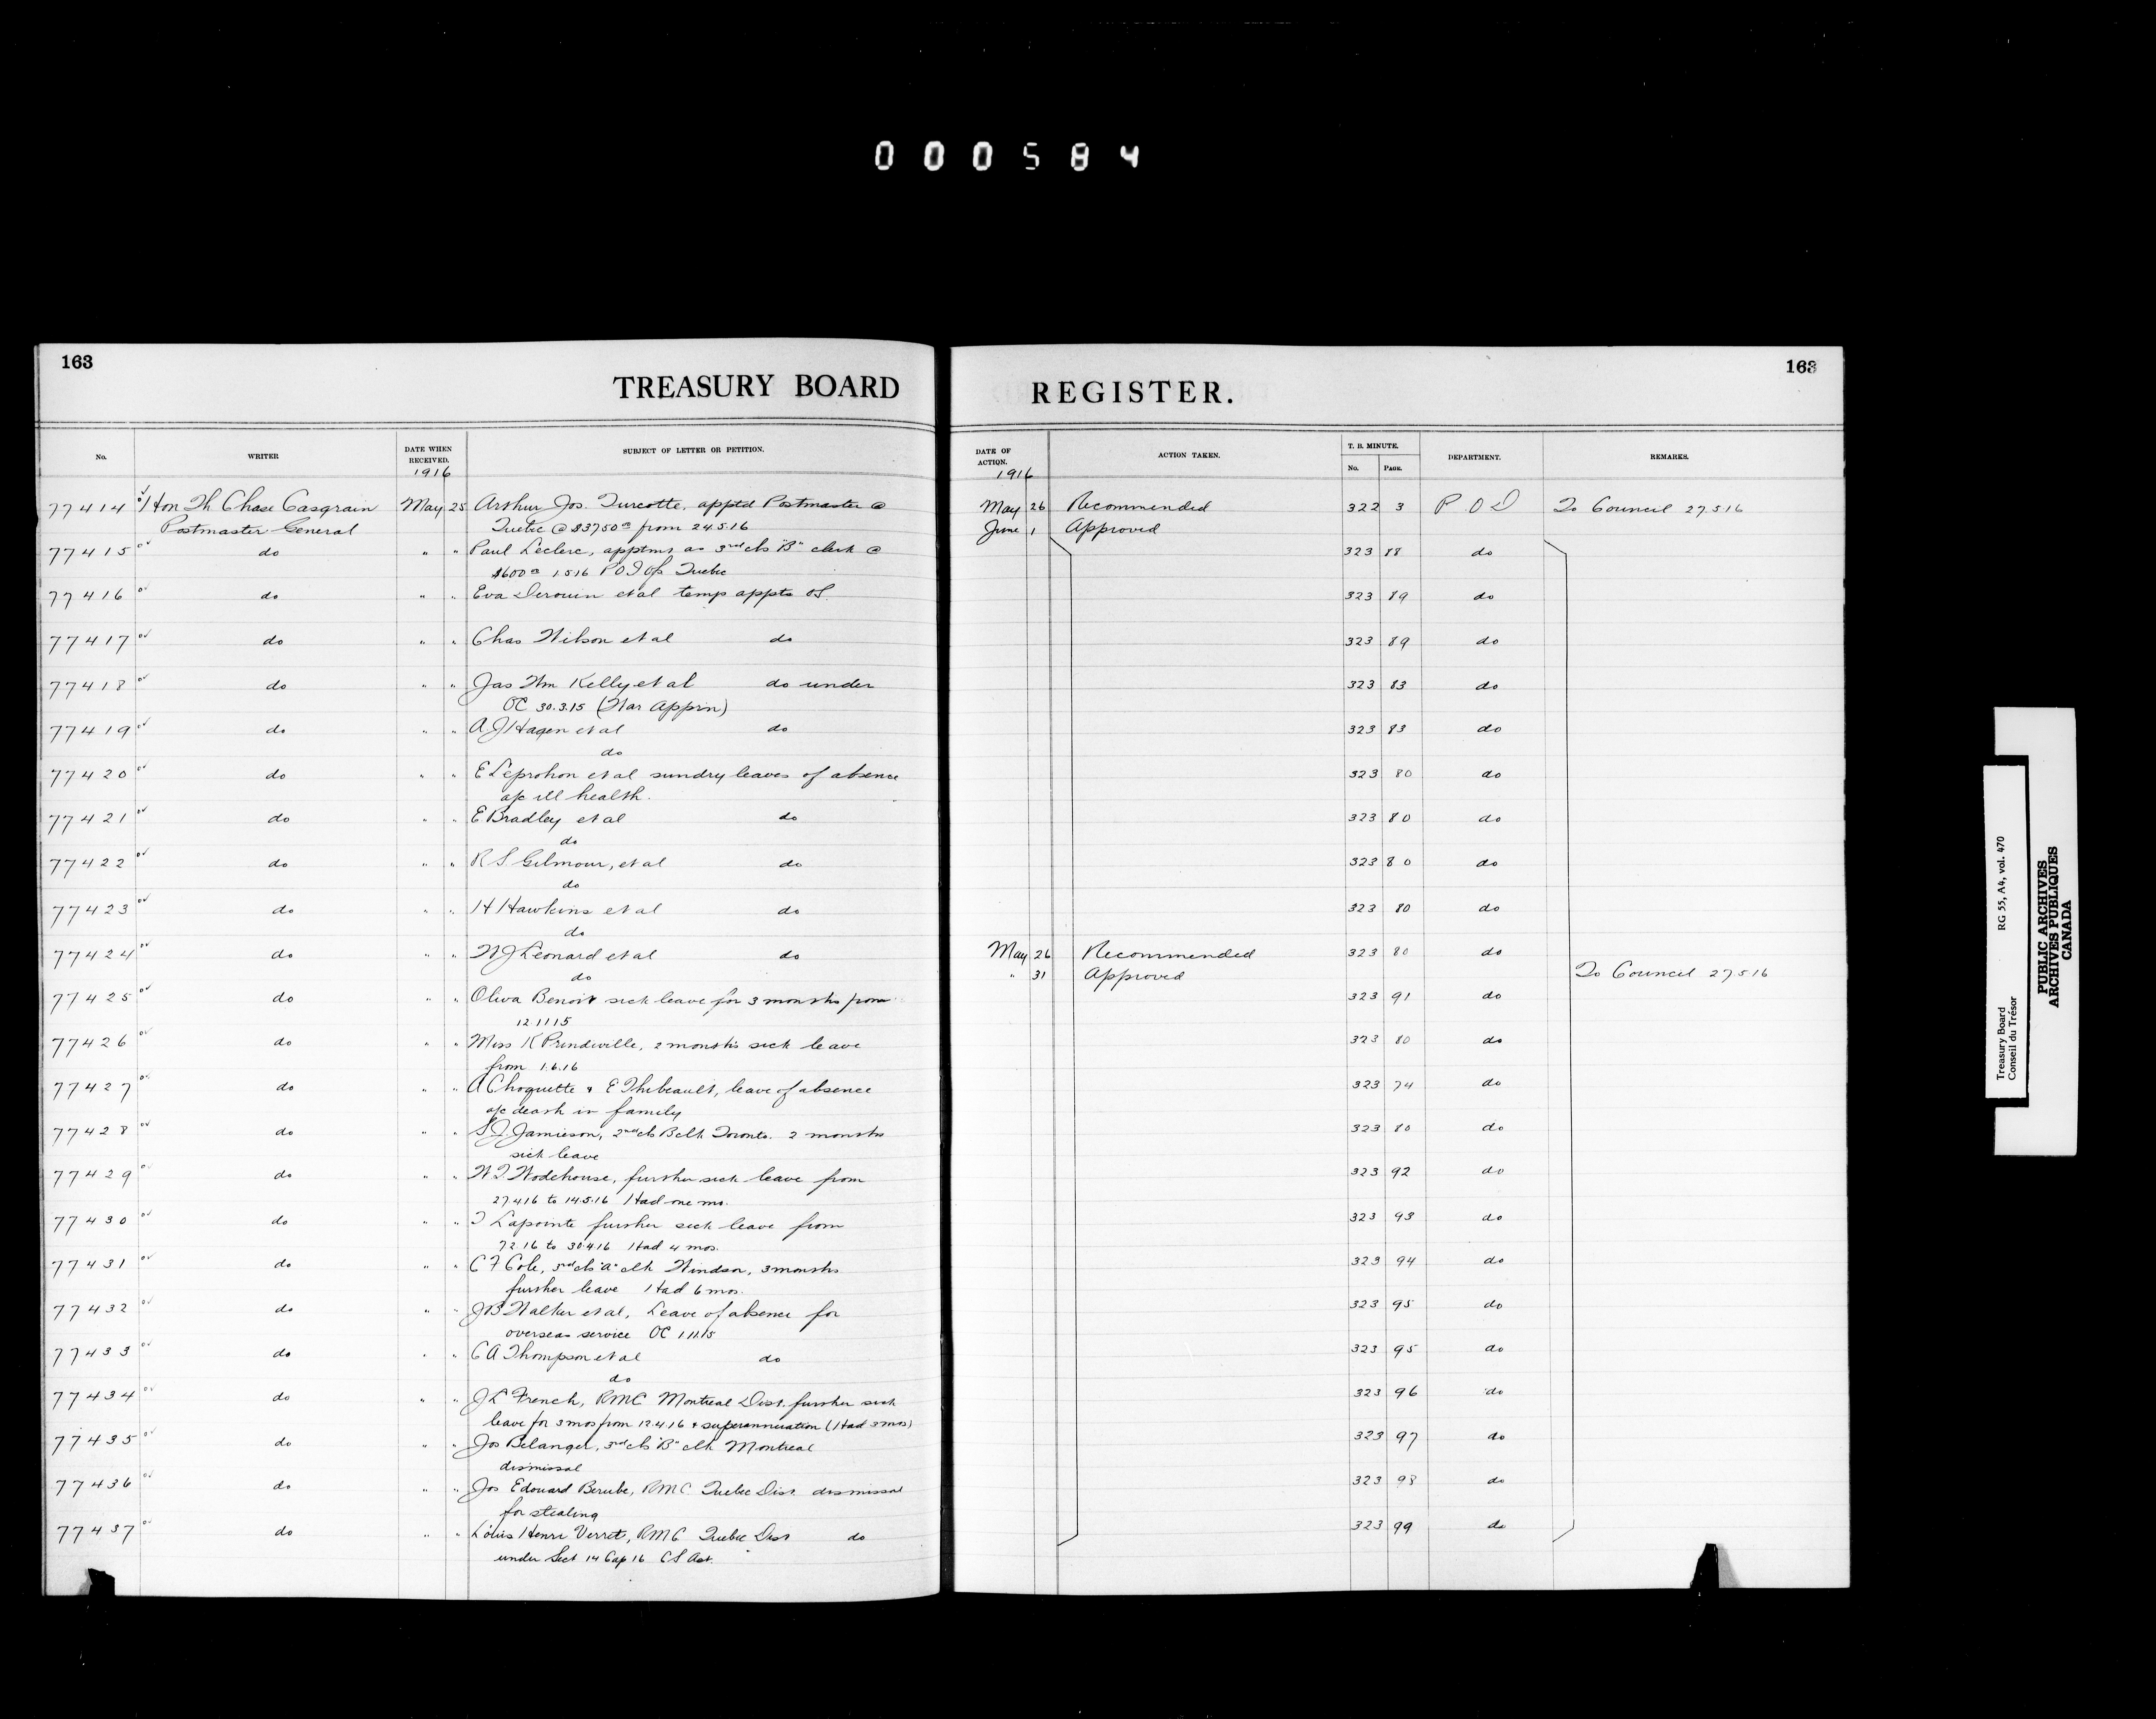 000584
163
TREASURY BOARD
No.
WRITER
DATE WHEN RECEIVED.
1916
SUBJECT OF LETTER OR PETITION.
77414 Hon Th Chase Casgrain May 25 Arthur Jos. Turcotte, apptd Postmaster @
Postmaster General Quebec @ $3750 00 from 24.5.16
77415 do " " Paul Leclerc, apptmt as 3rd cls "B" clerk @
$600 00 1.5.16 P O I Of Quebec
77416 do " " Eva Derouin et al temp appts OS
77417 do " " Chas Wilson et al do
77418 do " " Jas Wm Kelly et al do under
OC 30.3.15 (War Apprn)
77419 do " " A J Hagen et al do
do
77420 do " " E Leprohon et al sundry leaves of absence
a/c ill health.
77421 do " " E. Bradley et al do
do
77422 do " " R S. Gilmour, et al do
do
77423 do " " H Hawkins et al do
do
77424 do " " W J Leonard et al do
do
77425 do " " Oliva Benoit sick leave for 3 months from
12.11.15
77426 do " " Miss K Prindiville, 2 months sick leave
from 1.6.16
77427 do " " A Choquette & E Thibeault, leave of absence
a/c death in family
77428 do " " S J Jamieson, 2nd cls B clk Toronto. 2 months
sick leave
77429 do " " W I Wodehouse, further sick leave from
27.4.16 to 14.5.16 Had one mo.
77430 do " " T Lapointe further sick leave from
7.2.16 to 30.4.16 Had 4 mos.
77431 do " " C F Cole, 3rd cls "A" clk Windsor, 3 months
further leave Had 6 mos.
77432 do " " J B Walker et al, Leave of absence for
overseas service OC 1.11.15
77433 do " " C A Thompson et al do
do
77434 do " " J L French, RMC Montreal Dist. further sick
leave for 3 mos from 12.4.16 & superannuation (Had 3 mos)
77435 do " " Jos Belanger, 3rd cls "B" clk Montreal
dismissal
77436 do " " Jos Edouard Berube, RMC Quebec Dist. dismissal
for stealing
77437 do " " Louis Henri Verret, RMC Quebec Dist do
under Sect 14 Cap 16 CS Act.
163
REGISTER.
DATE OF ACTION.
1916
ACTION TAKEN.
T. B. MINUTE.
No.
PAGE.
DEPARTMENT.
REMARKS.
May 26 Recommended 322 3 P.O.D To Council 27.5.16
June 1 Approved
323 88 do
323 89 do
323 89 do
323 83 do
323 83 do
323 80 do
323 80 do
323 80 do
323 80 do
May 26 Recommended 323 80 do
" 31 Approved To Council 27.5.16
323 91 do
323 80 do
323 74 do
323 80 do
323 92 do
323 93 do
323 94 do
323 95 do
323 95 do
323 96 do
323 97 do
323 98 do
323 99 do
Treasury Board RG 55, A4, vol. 470
Conseil du Trésor
PUBLIC ARCHIVES
ARCHIVES PUBLIQUES
CANADA